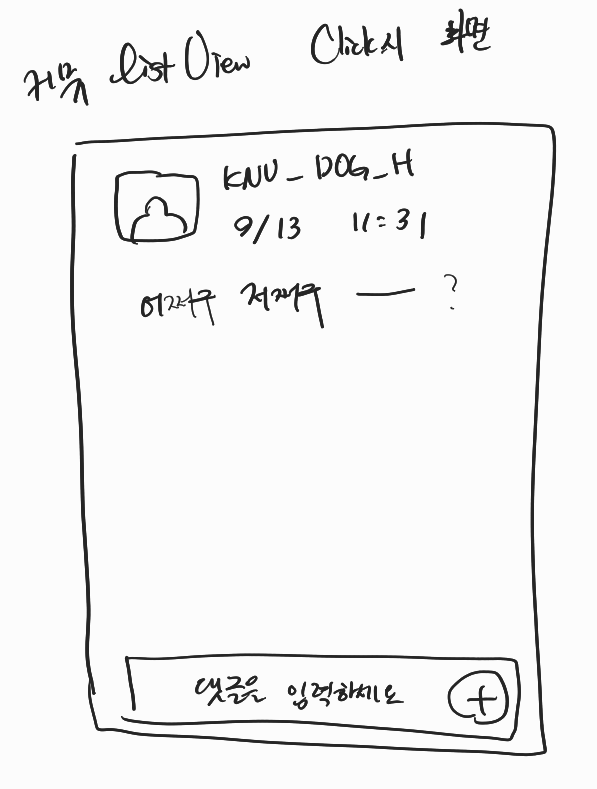 커뮤 list View Click시 화면
KNU_DOG_H
9/13 11:31
어쩌구 저쩌구 — ?
댓글을 입력하세요 +